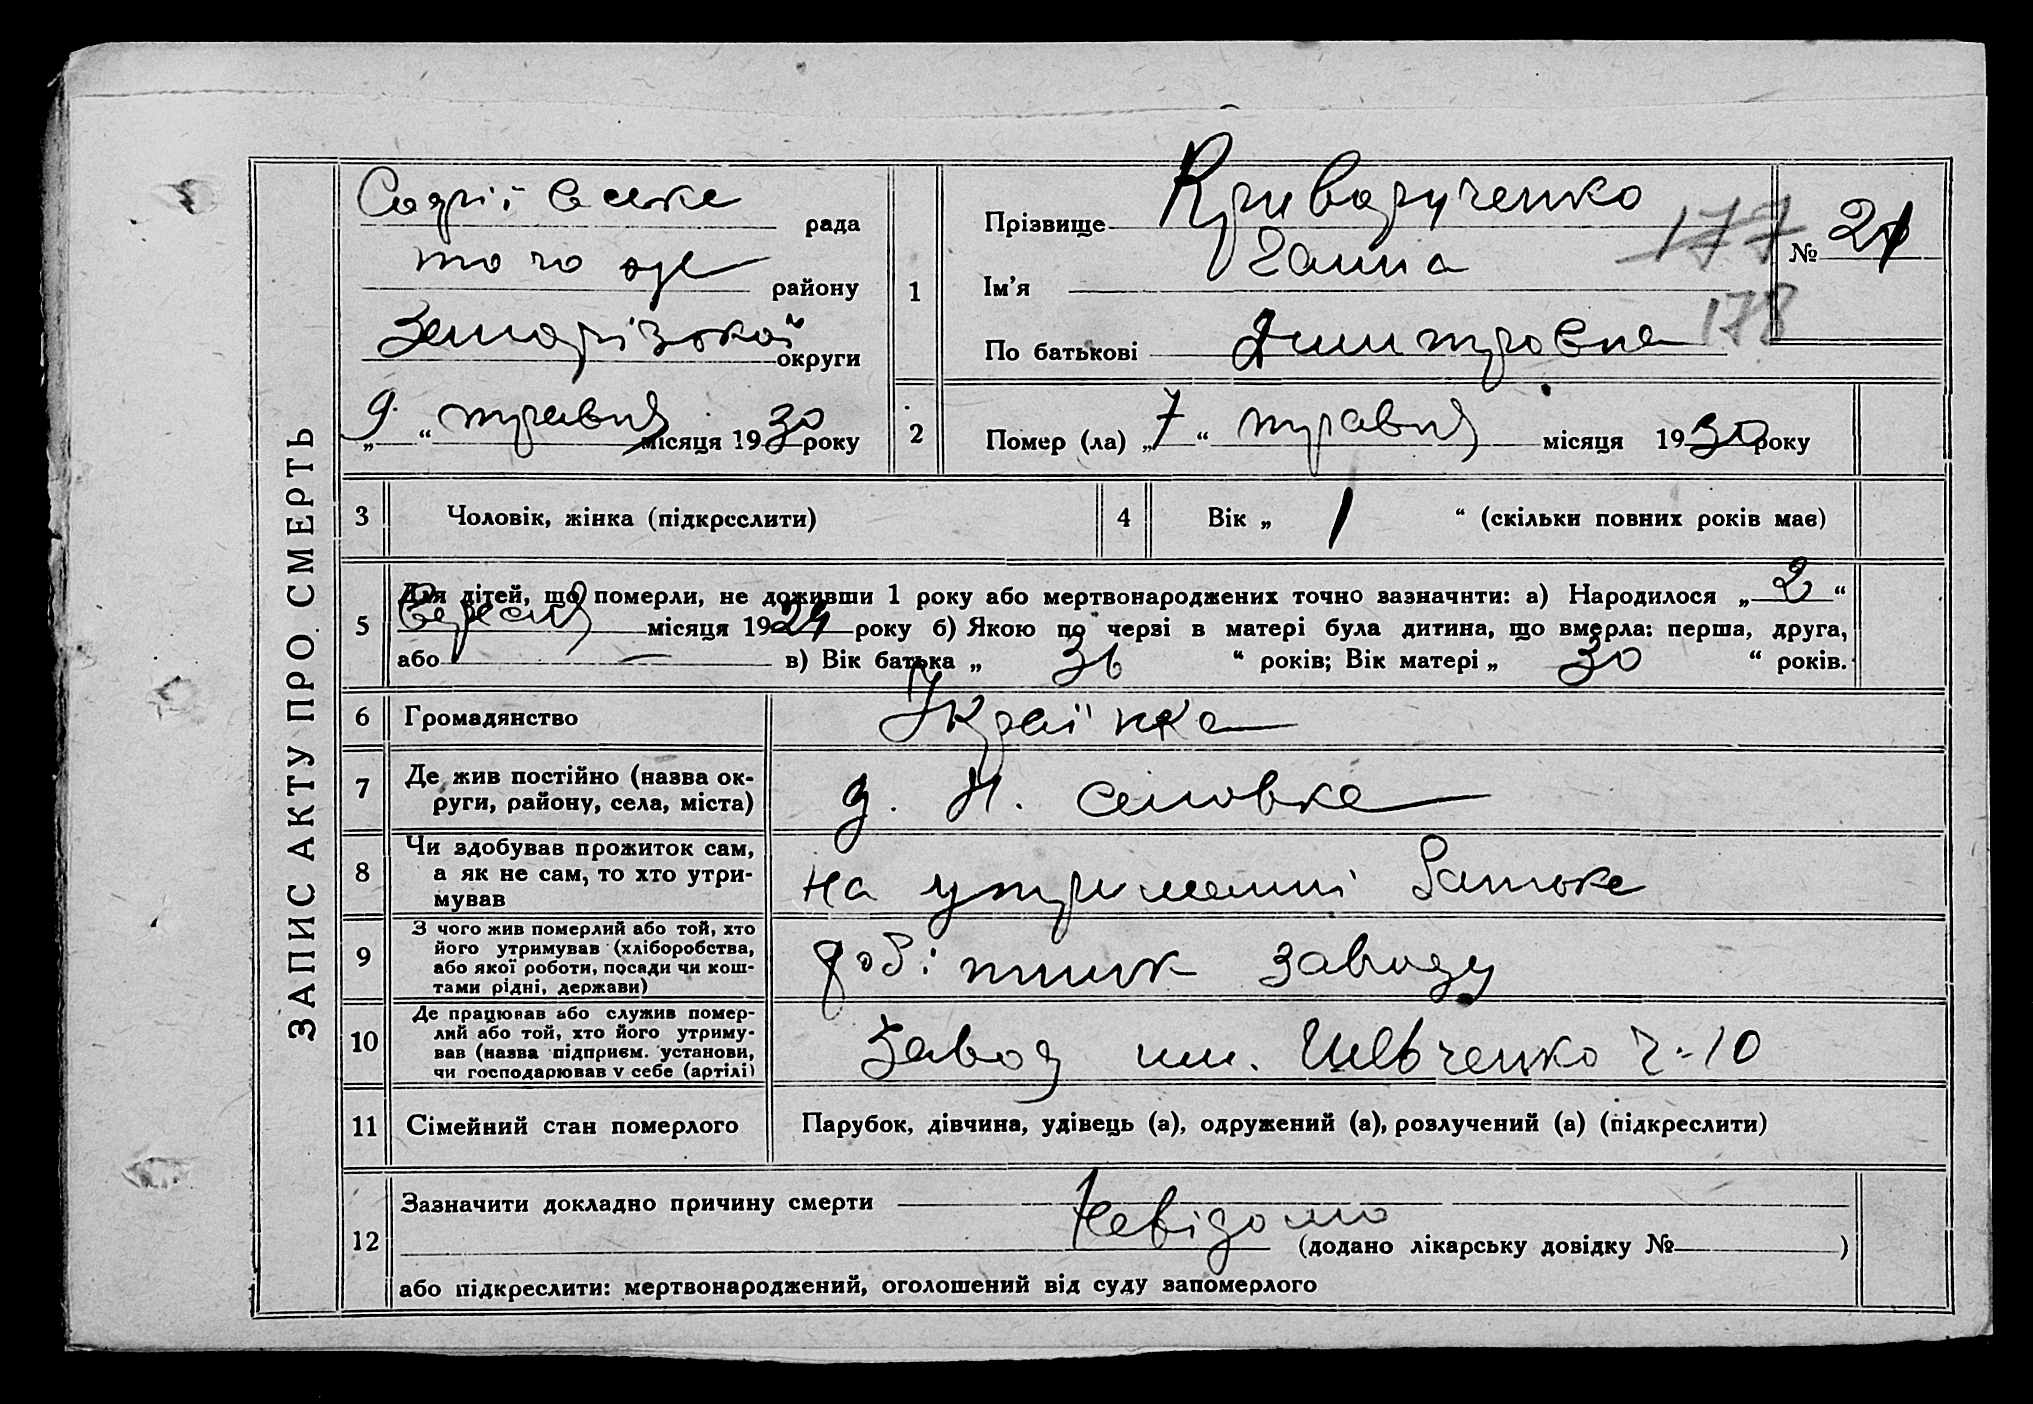 ЗАПИС АКТУ ПРО СМЕРТЬ
Софіївська рада
того ж району
Запорізької округи
„9“ травня місяця 1930 року
1
Прізвище Криворученко
Ім'я Ганна
По батькові Дмитровна
177
178
№ 21
2
Помер (ла) „7“ травня місяця 1930 року
3 Чоловік, жінка (підкреслити)
4 Вік „ 1 “ (скільки повних років має)
5
Для дітей, що померли, не доживши 1 року або мертвонароджених точно зазначити: а) Народилося „2“
Вересня місяця 1929 року б) Якою по черзі в матері була дитина, що вмерла: перша, друга,
або — в) Вік батька „ 36 “ років; Вік матері „ 30 “ років.
6 Громадянство Українка
7 Де жив постійно (назва ок-
руги, району, села, міста)
д. Н.
8 Чи здобував прожиток сам,
а як не сам, то хто утри-
мував
на утриманні батька
9 З чого жив померлий або той, хто
його утримував (хліборобства,
або якої роботи, посади чи кош-
тами рідні, держави)
робітник заводу
10 Де працював або служив помер-
лий або той, хто його утриму-
вав (назва підприєм. установи,
чи господарював у себе (артілі)
Завод им. Шевченко Ч-10
11 Сімейний стан померлого Парубок, дівчина, удівець (а), одружений (а), розлучений (а) (підкреслити)
12
Зазначити докладно причину смерти Невідомо
(додано лікарську довідку № )
або підкреслити: мертвонароджений, оголошений від суду запомерлого